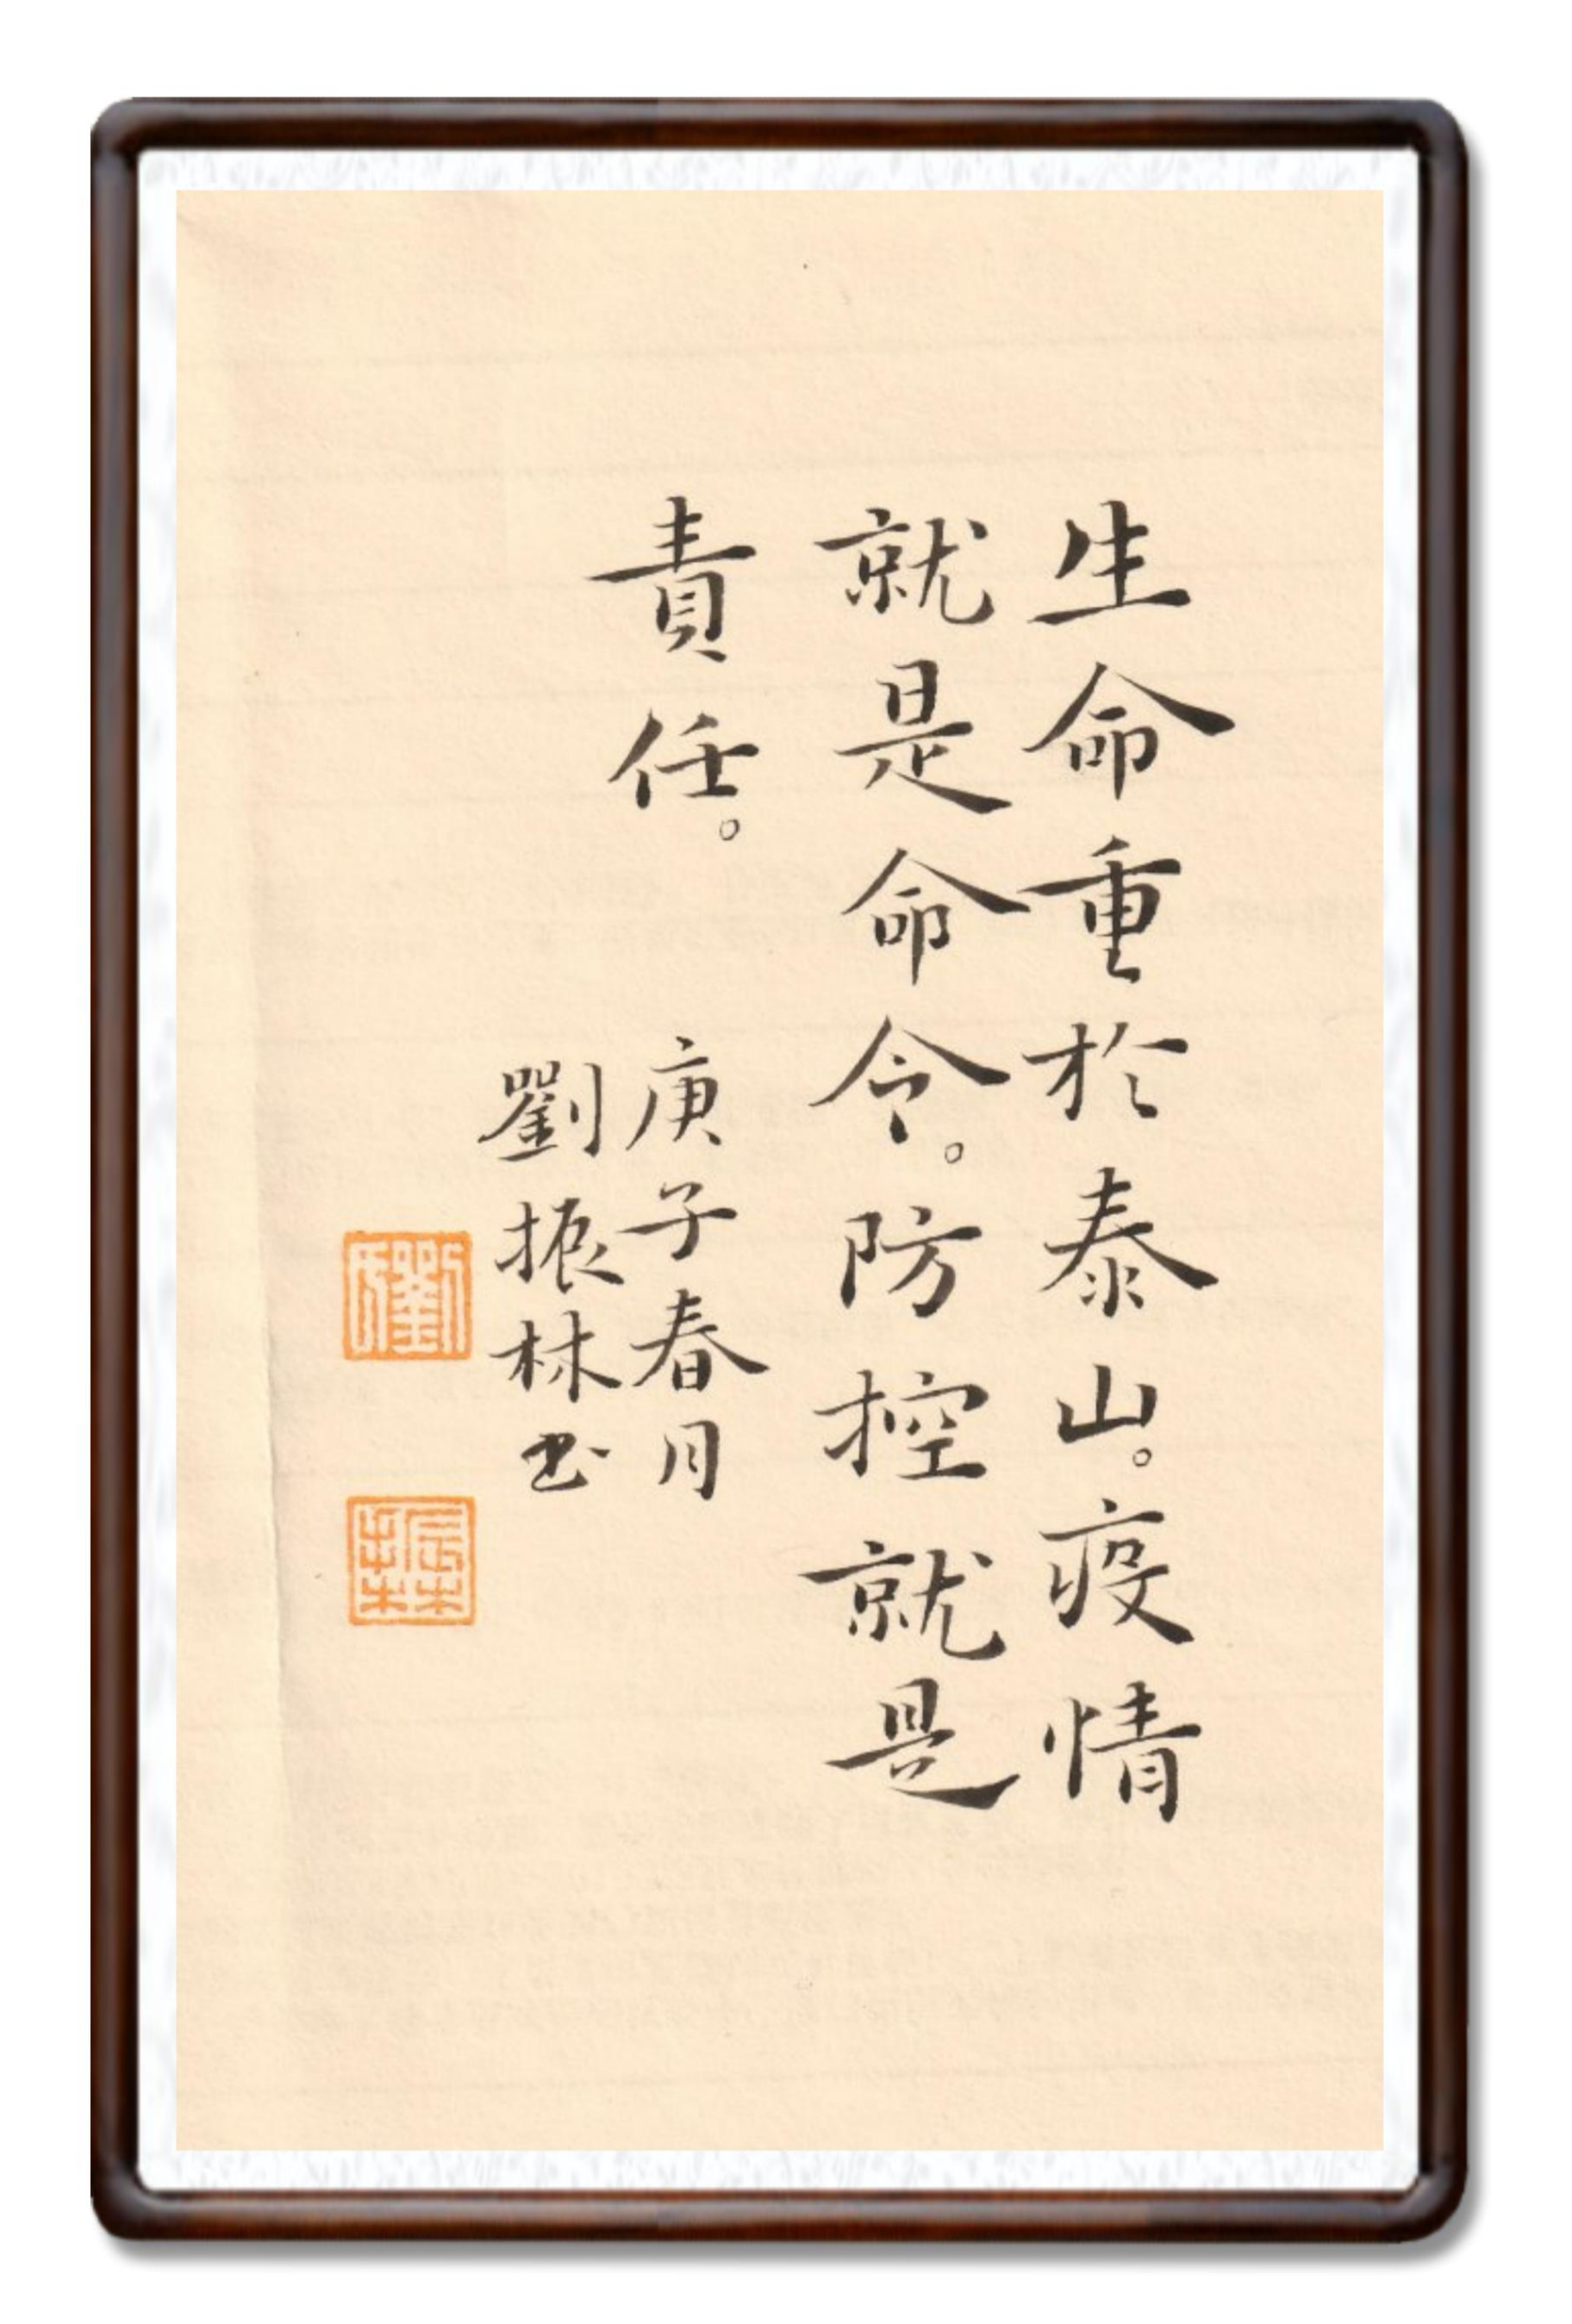 生命重於泰山。疫情
就是命令。防控就是
責任。
庚子春月
劉振林书
劉
振林